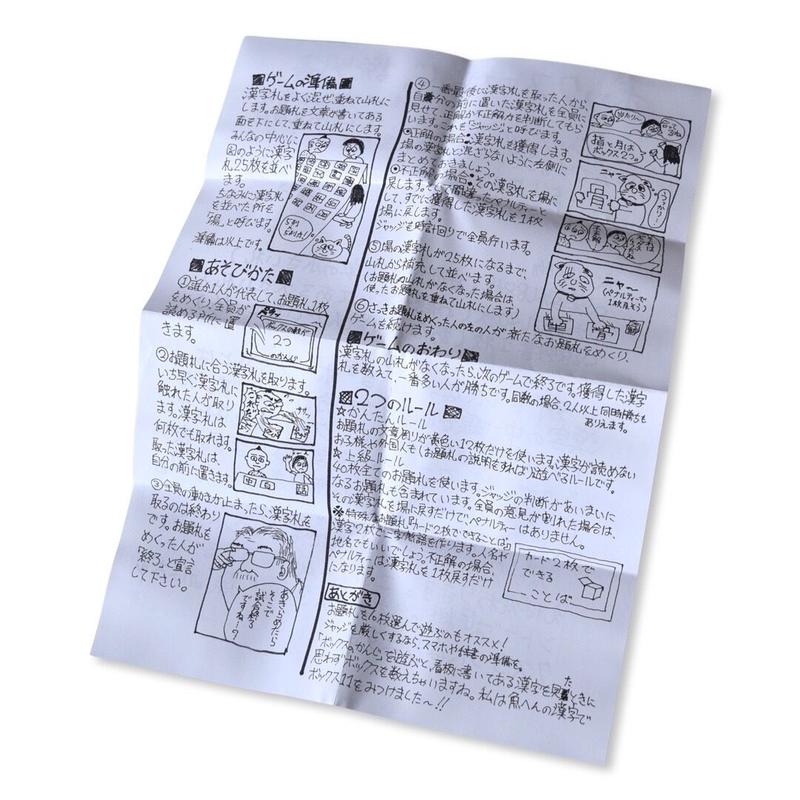 ゲームの準備
漢字札をよく混ぜ、重ねて山札に
します。お題札を文章が書いてある
面を下にして、重ねて山札にします。
みんなの中心に
図のように漢字
札25枚を並べ
ます。
ちなみに漢字札
を並べた所を
「場」と呼びます。
準備は以上です。
あそびかた
①誰か1人が代表して、お題札1枚
をめくり、全員が
読める所に置
きます。
2つ
のかんじ
②お題札に合う漢字札を取ります。
いち早く漢字札に
触れた人が取り
ます。漢字札は
何枚でも取れます。
取った漢字札は、
自分の前に置きます。
③全員の動きが止まったら、漢字札を
取るのは終わり
です。お題札を
めくった人が
「終了」と宣言
して下さい。
あきらめたら
そこで
試合終了
ですね…?
④一番最後に漢字札を取った人から、
自分の前に置いた漢字札を全員に
見せて、正解か不正解かを判断してもら
います。ここを「ジャッジ」と呼びます。
●正解の場合…漢字札を獲得します。
場の漢字札と混ざらないように左側に
まとめておきましょう。
●不正解の場合…その漢字札を場に
戻します。又、間違ったペナルティーと
して、すでに獲得した漢字札を1枚
場に戻します。
ジャッジを時計回りで全員行います。
骨と月は
ボックス2つ。
骨
うっかり
ニャ〜
(ペナルティーで
1枚戻そう)
⑤場の漢字札が25枚になるまで、
山札から補充して並べます。
(お題札の山札がなくなった場合は
使ったお題札を重ねて山札にします)
⑥さっきお題札をめくった人の左の人が新たなお題札をめくり、
ゲームを続けます。
ゲームのおわり
漢字札の山札がなくなったら、次のゲームで終了です。獲得した漢字
札を数えて、一番多い人が勝ちです。同数の場合、2人以上同時勝ちも
ありえます。
2つのルール
☆かんたんルール
お題札の文章周りが黄色い12枚だけを使います。漢字が読めない
お子様や外国人も(お題札の説明をすれば)遊べるルールです。
☆上級ルール
40枚全てのお題札を使います。ジャッジの判断があいまいに
なるお題札も含まれています。全員の意見が割れた場合は、
その漢字札を場に戻すだけで、ペナルティーはありません。
※特殊なお題札『カード2枚でできることば』
漢字2枚で二字熟語を作ります。人名や
地名でもいいでしょう。不正解の場合、
ペナルティーは漢字札を1枚戻すだけ
になります。
カード2枚で
できる
ことば
あとがき
お題札を10枚選んで遊ぶのもオススメ!
ジャッジを厳しくするなら、スマホや辞書の準備を。
「ボックスのかんじ」を遊ぶと、看板に書いてある漢字を見たときに
思わずボックスを数えちゃいますね。私は魚へんの漢字で
ボックス11をみつけました〜!!